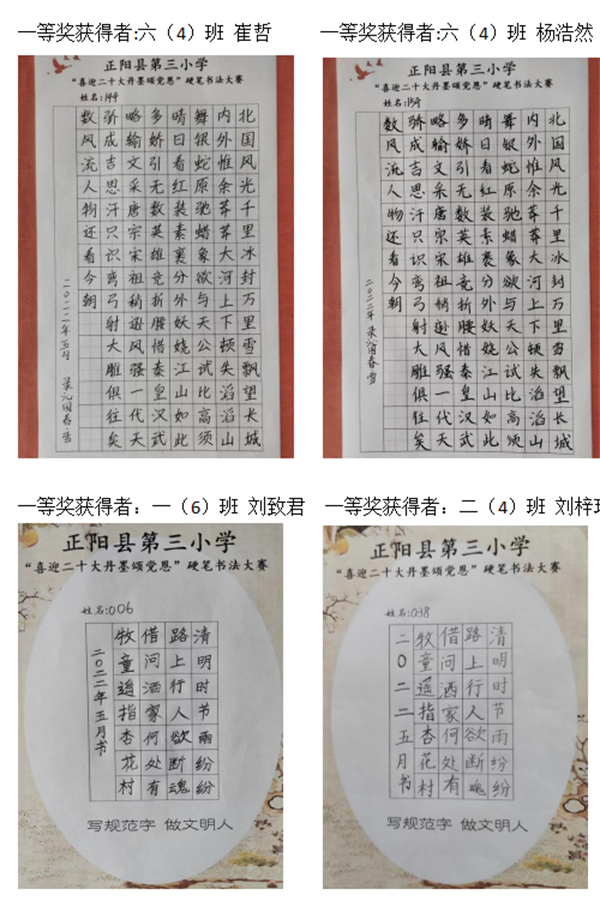 一等奖获得者:六（4）班 崔哲
正阳县第三小学
“喜迎二十大丹墨颂党恩”硬笔书法大赛
姓名:
北国风光千里冰封万里雪飘望长城
内外惟余莽莽大河上下顿失滔滔山
舞银蛇原驰蜡象欲与天公试比高须
晴日看红装素裹分外妖娆江山如此
多娇引无数英雄竞折腰惜秦皇汉武
略输文采唐宗宋祖稍逊风骚一代天
骄成吉思汗只识弯弓射大雕俱往矣
数风流人物还看今朝
二〇二二年五月 录沁园春·雪
一等奖获得者:六（4）班 杨浩然
正阳县第三小学
“喜迎二十大丹墨颂党恩”硬笔书法大赛
姓名:
北国风光千里冰封万里雪飘望长城
内外惟余莽莽大河上下顿失滔滔山
舞银蛇原驰蜡象欲与天公试比高须
晴日看红装素裹分外妖娆江山如此
多娇引无数英雄竞折腰惜秦皇汉武
略输文采唐宗宋祖稍逊风骚一代天
骄成吉思汗只识弯弓射大雕俱往矣
数风流人物还看今朝
二〇二二年 录沁园春雪
一等奖获得者：一（6）班 刘致君
正阳县第三小学
“喜迎二十大丹墨颂党恩”硬笔书法大赛
姓名:006
清明时节雨纷纷
路上行人欲断魂
借问酒家何处有
牧童遥指杏花村
二〇二二年五月书
写规范字 做文明人
一等奖获得者：二（4）班 刘梓
正阳县第三小学
“喜迎二十大丹墨颂党恩”硬笔书法大赛
姓名:038
清明时节雨纷纷
路上行人欲断魂
借问酒家何处有
牧童遥指杏花村
二〇二二五月书
写规范字 做文明人